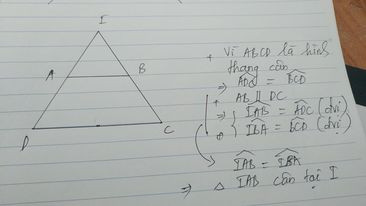 I
A
B
D
C
+ Vì ABCD là hình
thang cân
⇒ \widehat{ADC} = \widehat{BCD}
+ AB ∥ DC
⇒ { \widehat{IAB} = \widehat{ADC} (đvị)
\widehat{IBA} = \widehat{BCD} (đvị)
\widehat{IAB} = \widehat{IBA}
⇒ △ IAB cân tại I